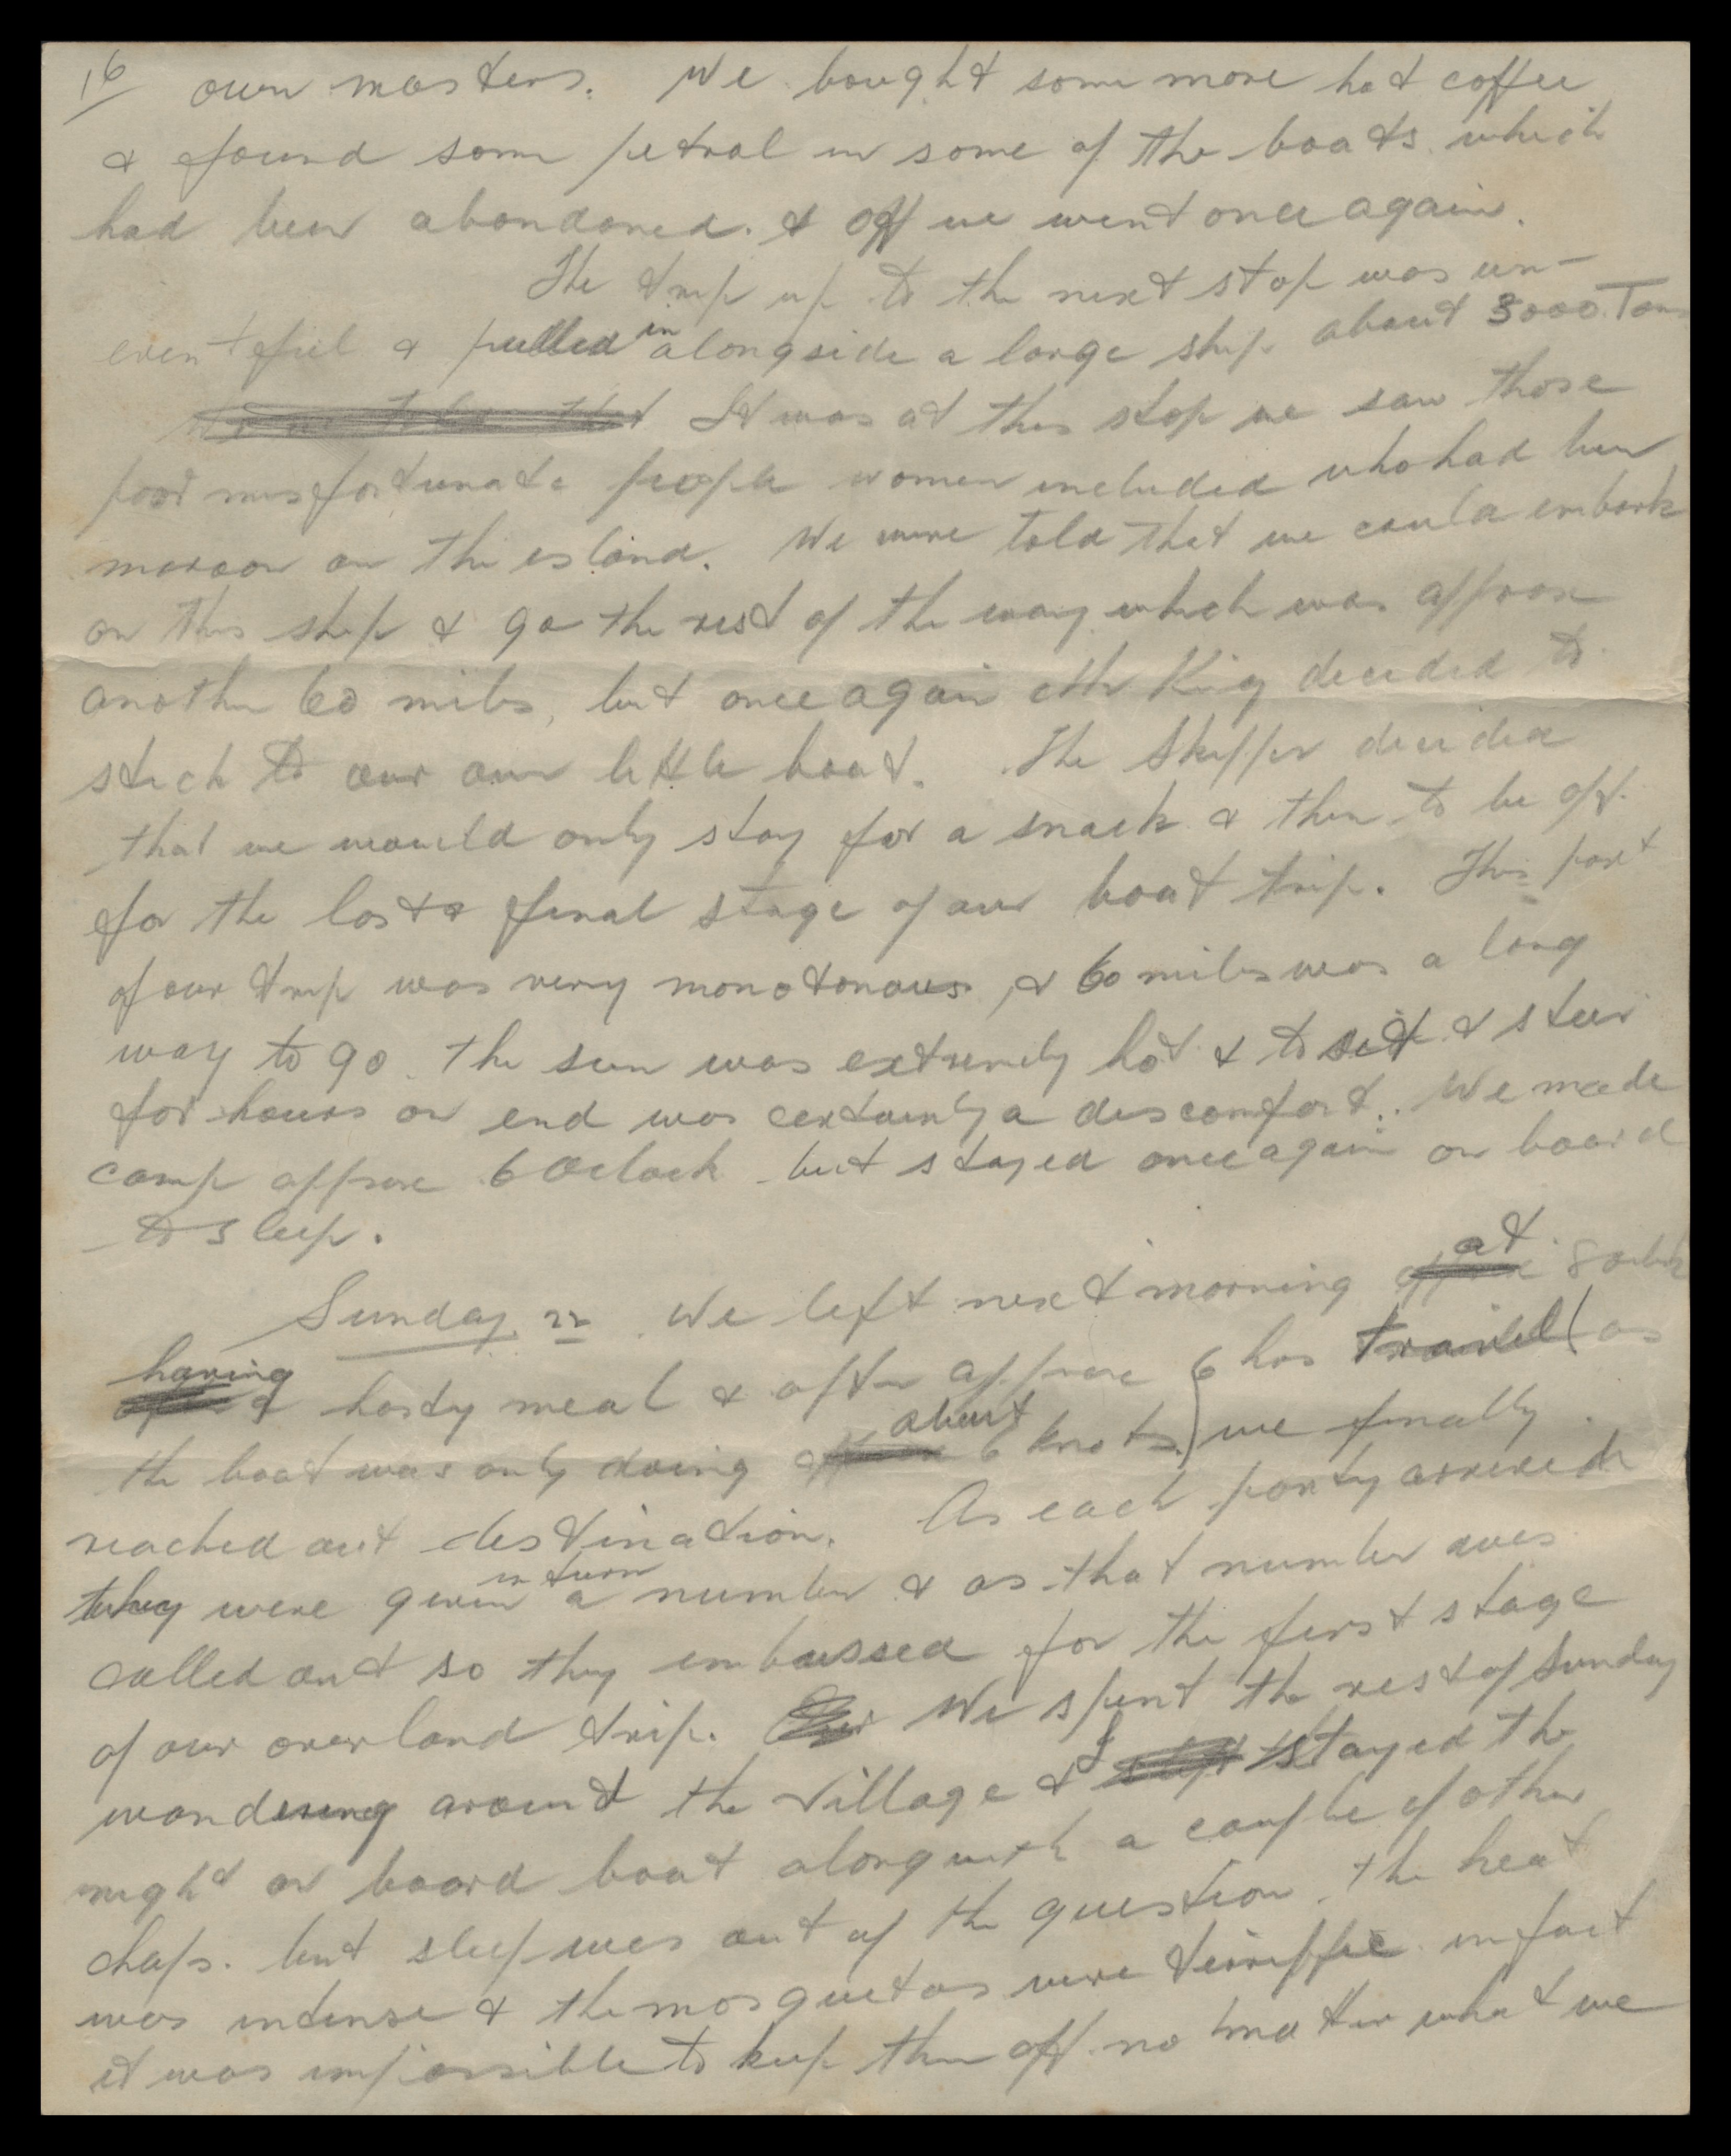 16 own masters. We bought some more hot coffee
& found some petrol in some of the boats which
had been abondoned. & off we went once again.
The trip up to the next stop was un-
eventful & pulled in alongside a large ship about 3000 Tons
It was at this stop we saw those
poor misfortunate people women included who had been
maroon on the island. We were told that we could embark
on this ship & go the rest of the way which was approx
another 60 miles, but once again Mr King decided to
stick to our own little boat. The Skipper decided
that we would only stay for a snack & then to be off
for the last & final stage of our boat trip. This part
of our trip was very monotonous, & 60 miles was a long
way to go. The sun was extremely hot & to sit & steer
for hours on end was certainly a discomfort. We made
camp approx 6 Oclock but stayed once again on board
to sleep.
Sunday 22 We left next morning at 8 oclock
having a hasty meal & after approx 6 hrs travel (as
the boat was only doing about 6 knots) we finally
reached out destination. As each party arrived
they were given in turn a number & as that number was
called out so they embussed for the first stage
of our overland trip. We spent the rest of Sunday
wandering around the village & I stayed the
night on board boat along with a couple of other
chaps. but sleep was out of the question. the heat
was intense & the mosquetos were terriffic in fact
it was impossible to keep them off no matter what we